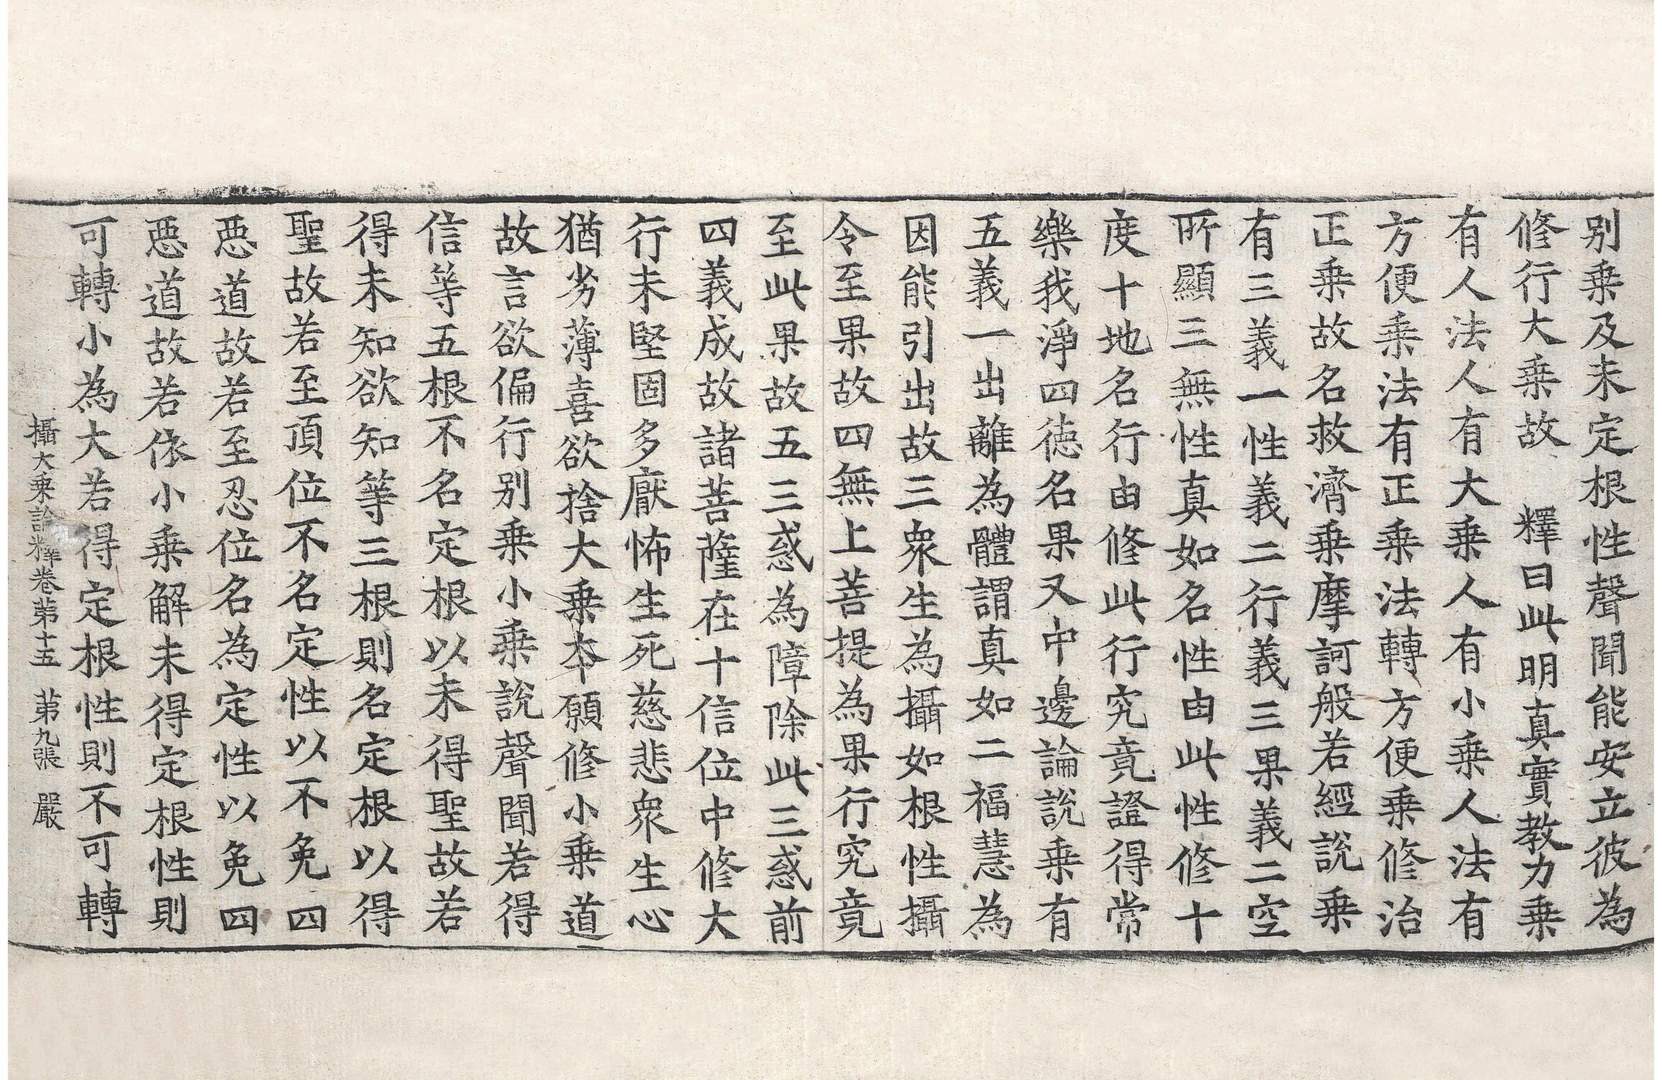 别乗及未定根性聲聞能安立彼為
修行大乗故　釋曰此明真實教力乗
有人法人有大乗人有小乗人法有
方便乗法有正乗法轉方便乗修治
正乗故名救濟乗摩訶般若經説乗
有三義一性義二行義三果義二空
所顯三無性真如名性由此性修十
度十地名行由修此行究竟證得常
樂我淨四徳名果又中邊論説乗有
五義一出離為體謂真如二福慧為
因能引出故三衆生為攝如根性攝
令至果故四無上菩提為果行究竟
至此果故五三惑為障除此三惑前
四義成故諸菩薩在十信位中修大
行未堅固多猒怖生死慈悲衆生心
猶劣薄喜欲捨大乗本願修小乗道
故言欲偏行别乗小乗説聲聞若得
信等五根不名定根以未得聖故若
得未知欲知等三根則名定根以得
聖故若至頂位不名定性以不免四
惡道故若至忍位名為定性以免四
惡道故若依小乗解未得定根性則
可轉小為大若得定根性則不可轉
攝大乗論釋卷苐十五　苐九張　嚴